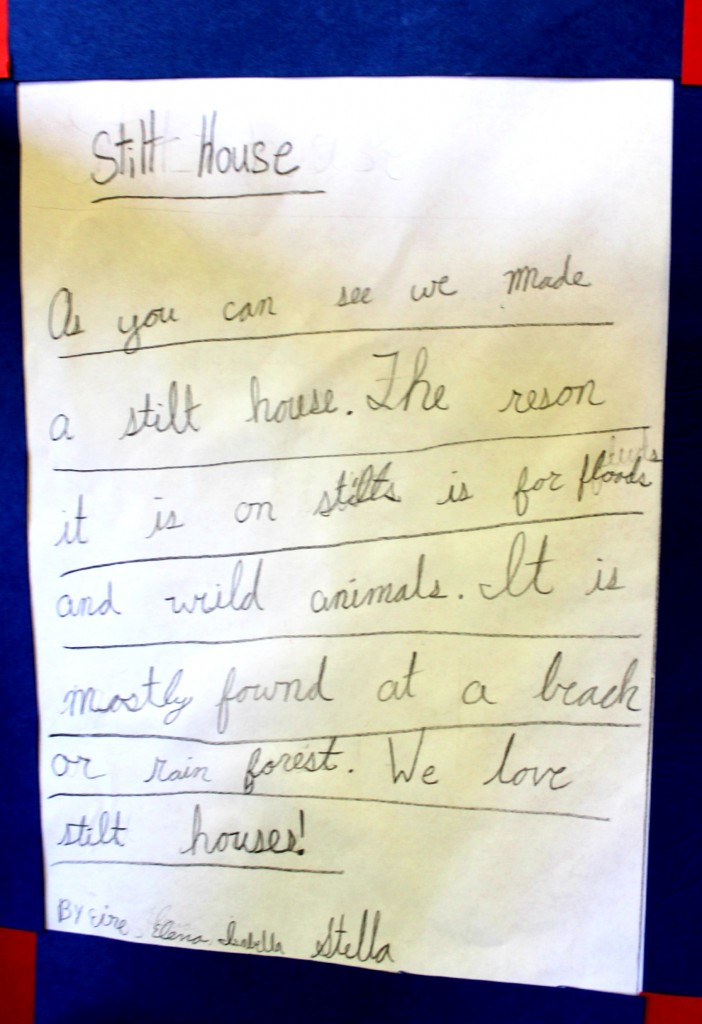 Stilt House
As you can see we made
a stilt house. The reson
it is on stilts is for floods
and wild animals. It is
mostly found at a beach
or rain forest. We love
stilt houses!
By Eire, Elena, Isabella Stella